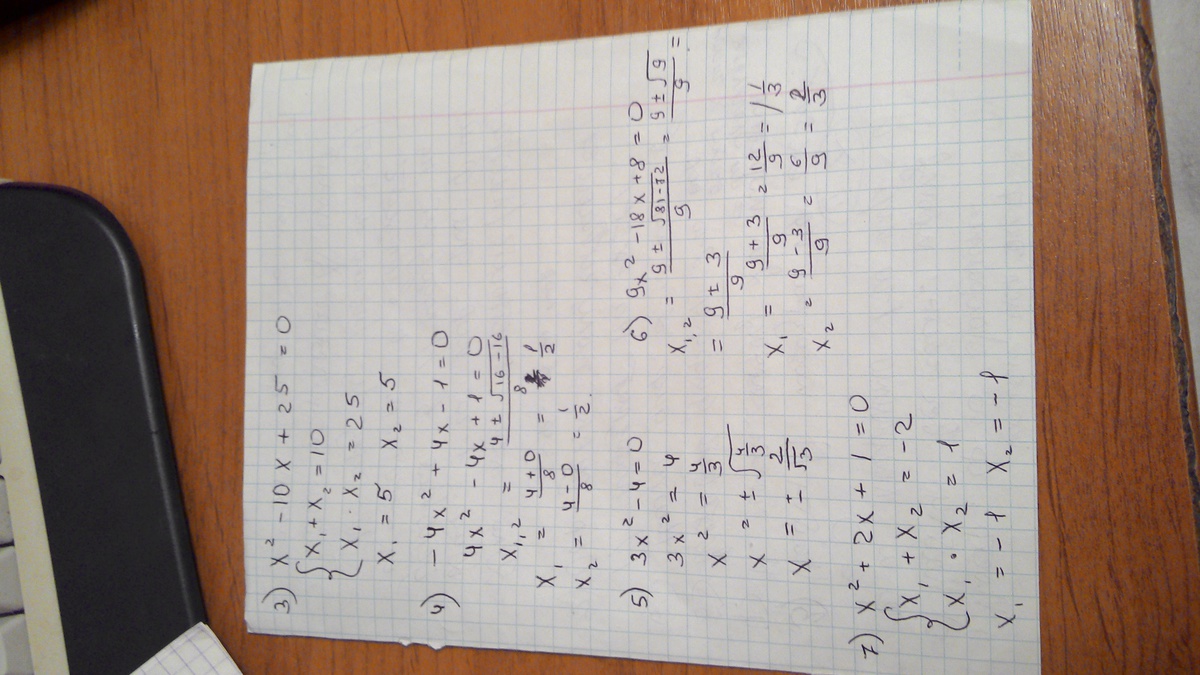 3) x² - 10x + 25 = 0
{ x₁ + x₂ = 10
x₁ · x₂ = 25
x₁ = 5 x₂ = 5
4) - 4x² + 4x - 1 = 0
4x² - 4x + 1 = 0
x₁,₂ = (4 ± √(16-16))/8
x₁ = (4+0)/8 = 1/2
x₂ = (4-0)/8 = 1/2.
5) 3x² - 4 = 0
3x² = 4
x² = 4/3
x = ± √(4/3)
x = ± 2/√3
6) 9x² - 18x + 8 = 0
x₁,₂ = (9 ± √(81-72))/9 = (9 ± √9)/9 =
= (9 ± 3)/9
x₁ = (9+3)/9 = 12/9 = 1 1/3
x₂ = (9-3)/9 = 6/9 = 2/3
7) x² + 2x + 1 = 0
{ x₁ + x₂ = -2
x₁ · x₂ = 1
x₁ = -1 x₂ = -1